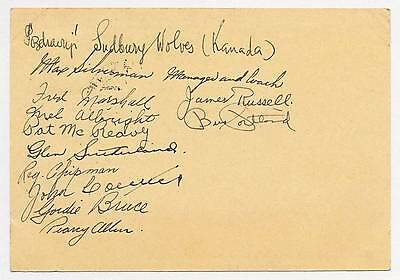 Pozdravip Sudbury Wolves (Kanada)
Max Silverman Manager and coach
Fred Marshall
James Russell.
Mel Albright
Pat McReavy
Glen Sutherland.
Reg. Chipman
John
Gordie Bruce
Percy Allen